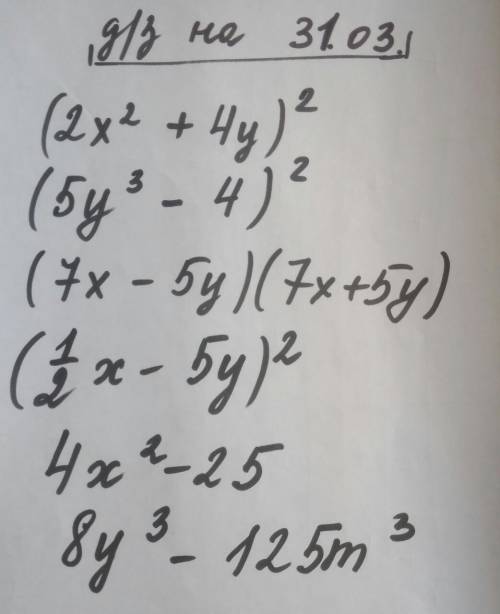 д/з на 31.03.
(2x² + 4y)²
(5y³ - 4)²
(7x - 5y)(7x+5y)
(1/2 x - 5y)²
4x² - 25
8y³ - 125m³